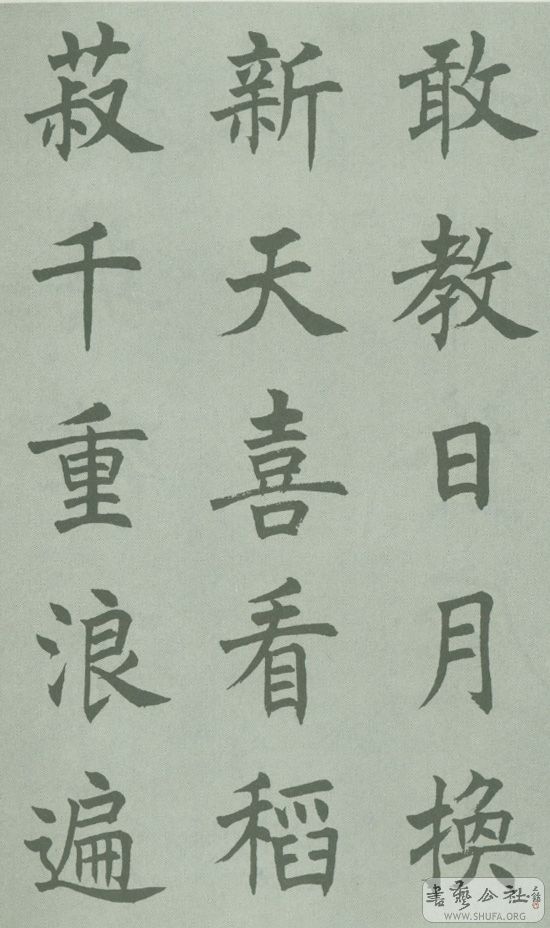 敢教日月換
新天喜看稻
菽千重浪遍
書藝公社
WWW.SHUFA.ORG